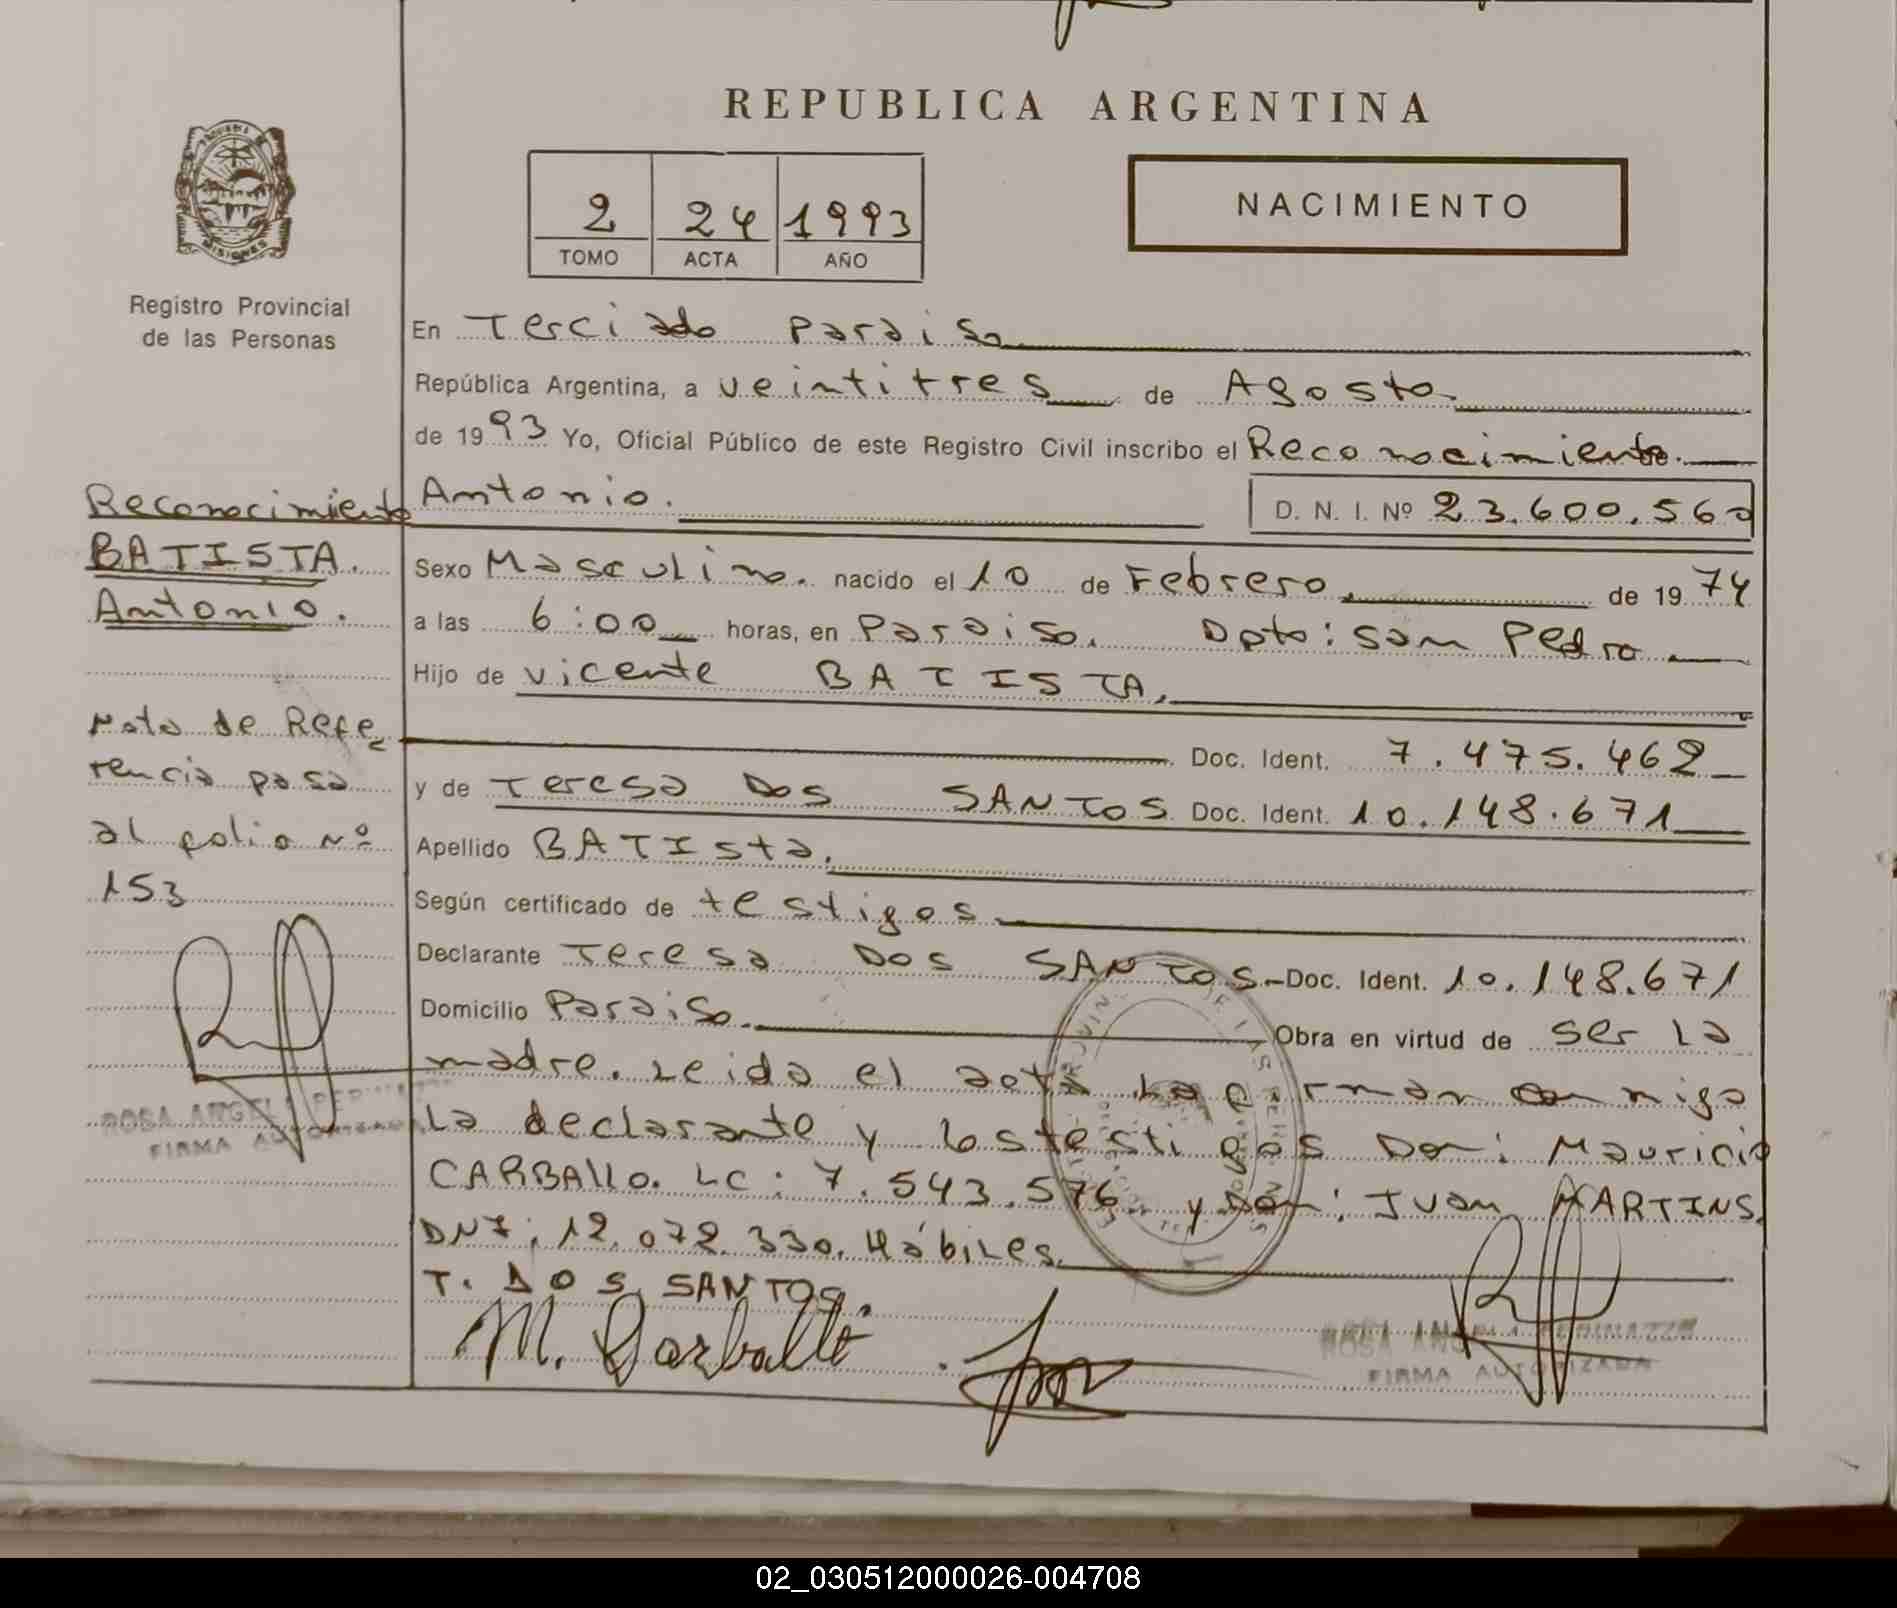 REPUBLICA ARGENTINA
2 24 1993
TOMO ACTA AÑO
NACIMIENTO
MISIONES
Registro Provincial
de las Personas
En Terciado Paraiso
República Argentina, a veintitres de Agosto.
de 1993 Yo, Oficial Público de este Registro Civil inscribo el Reconocimiento.
Antonio. D. N. I. Nº 23.600.560
Sexo Masculino. nacido el 10 de Febrero. de 1974
a las 6:00 horas, en Paraiso. Dpto: San Pedro
Hijo de Vicente BATISTA.
Doc. Ident. 7.475.462
y de Teresa Dos SANTOS Doc. Ident. 10.148.671
Apellido BATIsta.
Según certificado de testigos
Declarante Teresa Dos SANTOS.- Doc. Ident. 10.148.671
Domicilio Paraiso. Obra en virtud de ser la
madre. Leida el acta la firman conmigo
la declarante y los testigos Don: Mauricio
CARBAllo. LC: 7.543.576 y Don: Juan MARTINS.
DNI: 12.072.330. Hábiles.
T. DOS SANTOS.
M. Carballo
ROSA ANGELA
FIRMA AUTORIZADA
Reconocimiento
BATISTA.
Antonio.
Nota de Refe
rencia pasa
al folio Nº
153
ROSA ANGELA
FIRMA AUTORIZADA
02_030512000026-004708